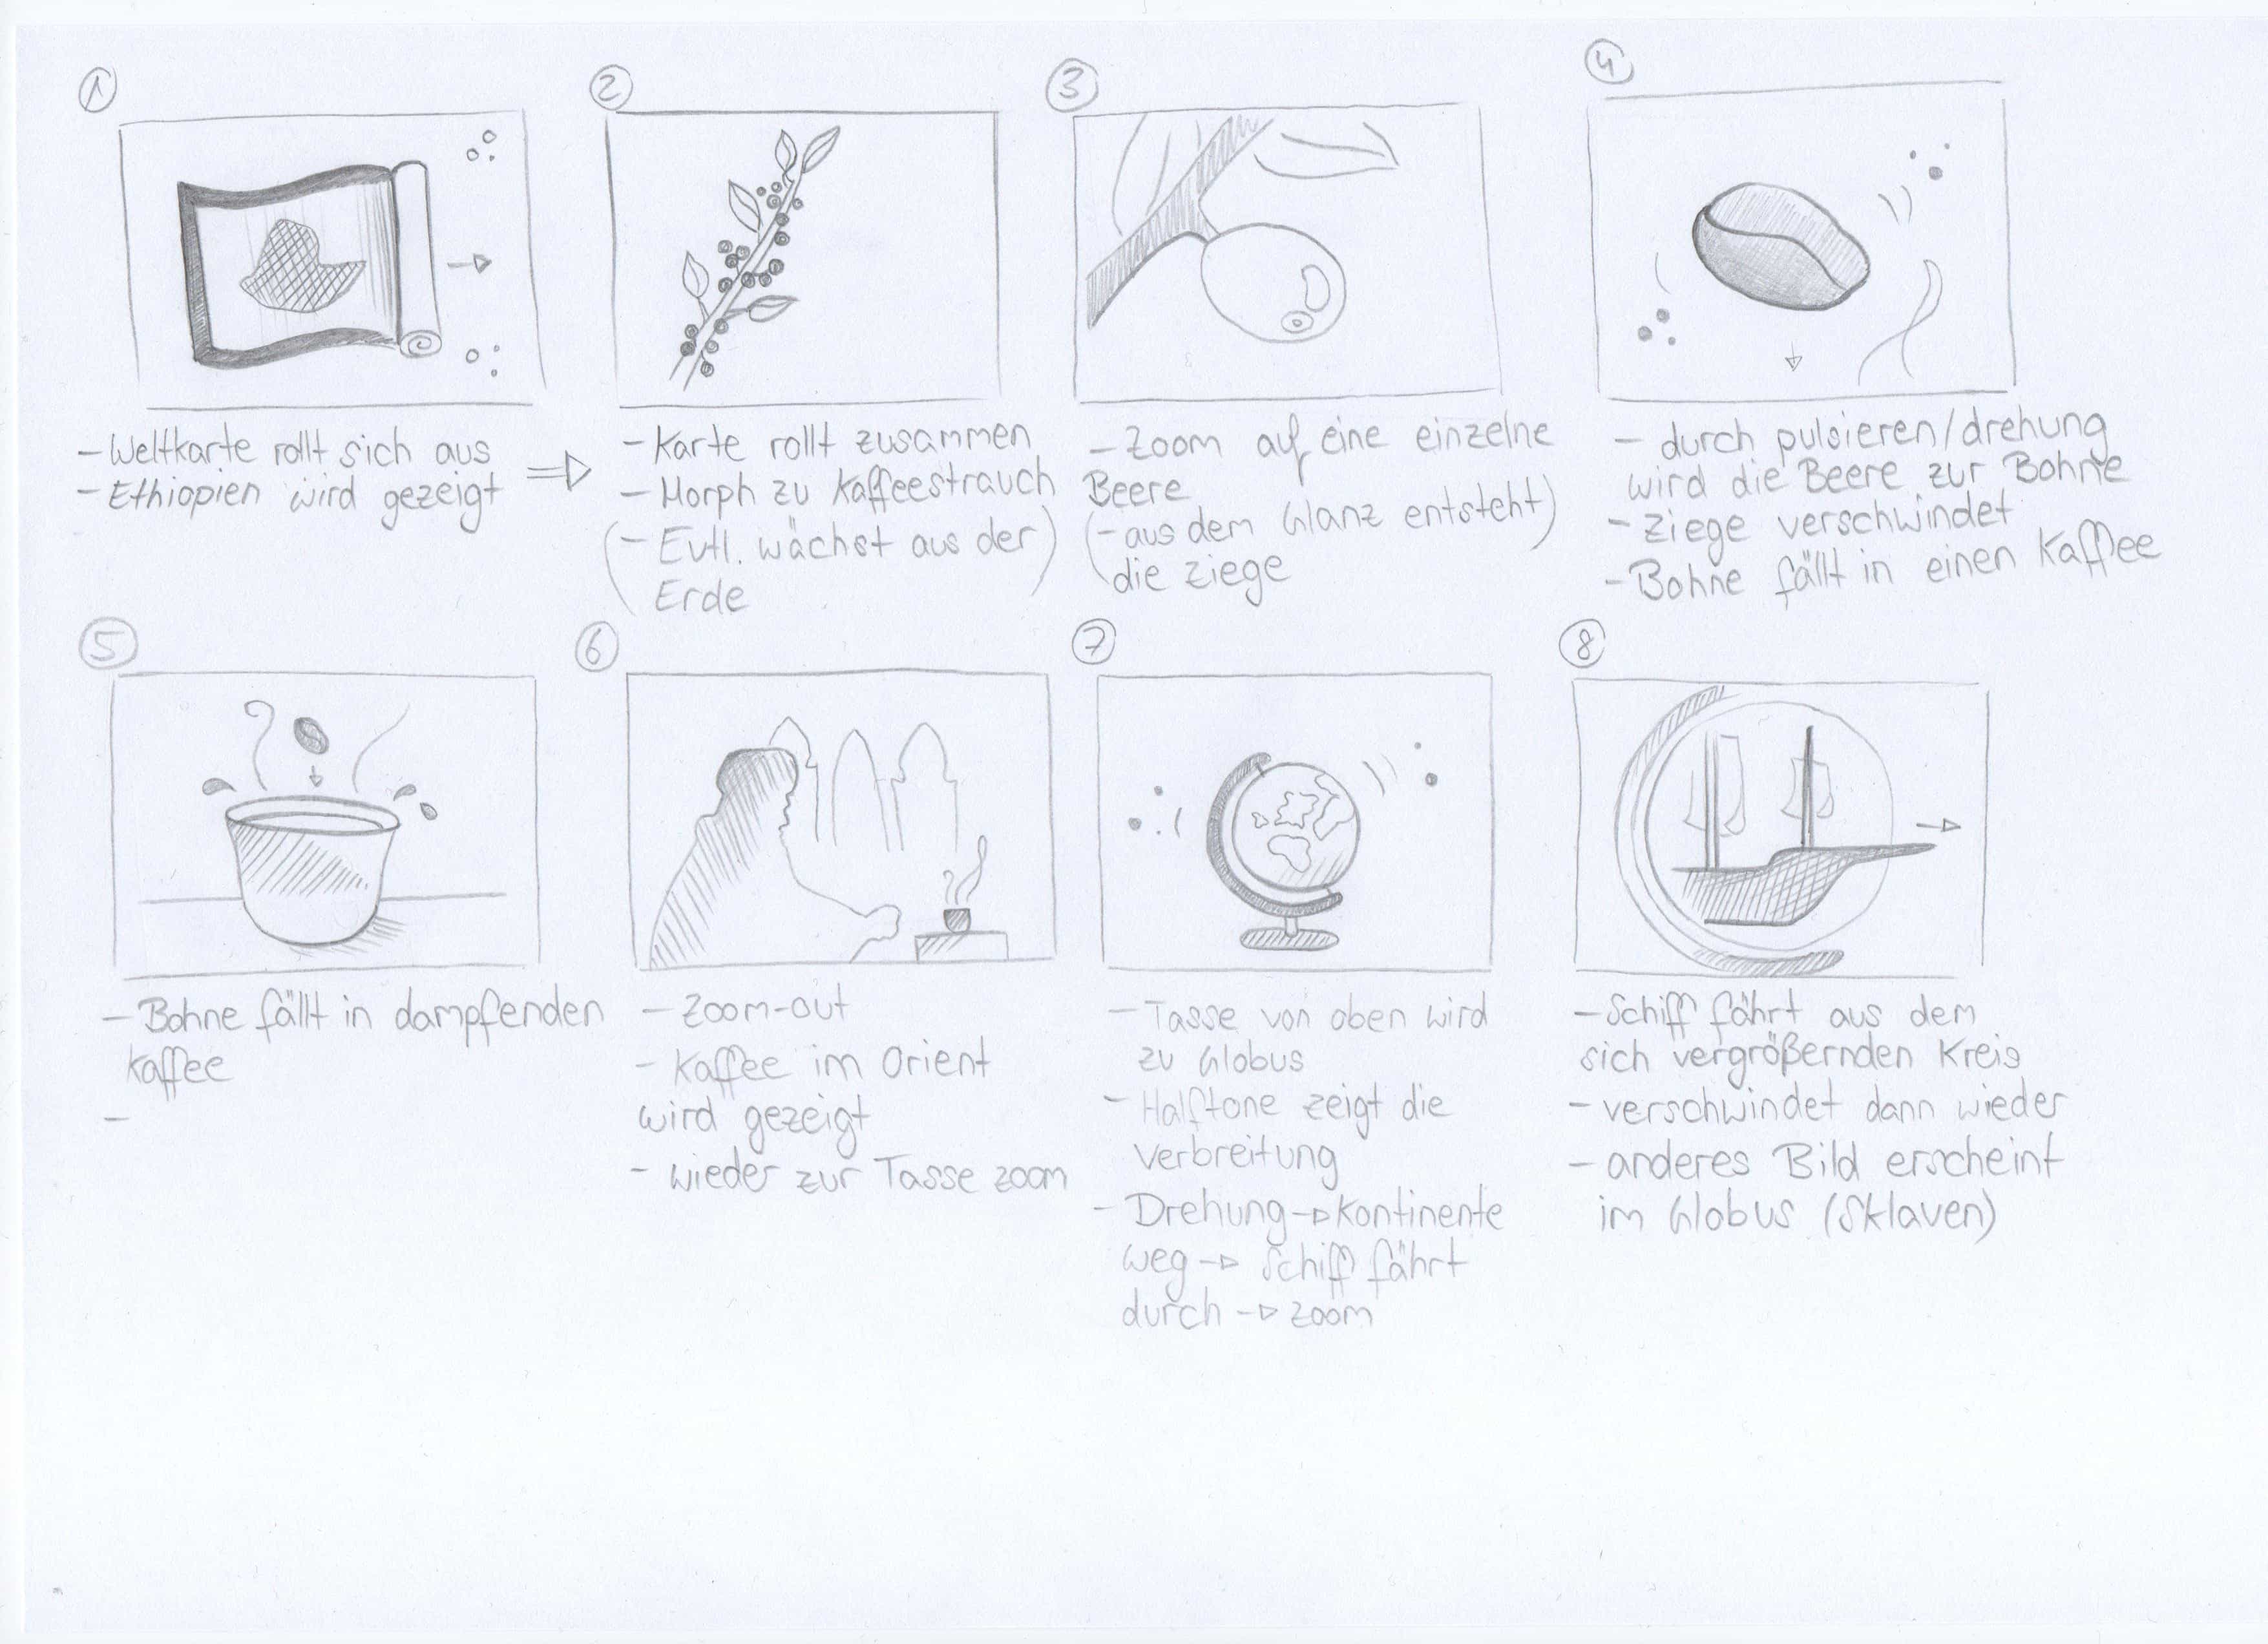 1
- Weltkarte rollt sich aus
- Ethiopien wird gezeigt
2
- Karte rollt zusammen
- Morph zu Kaffeestrauch
(- Evtl. wächst aus der
Erde)
3
- Zoom auf eine einzelne
Beere
(- aus dem Glanz entsteht)
die Ziege
4
- durch pulsieren/drehung
wird die Beere zur Bohne
- Ziege verschwindet
- Bohne fällt in einen Kaffee
5
- Bohne fällt in dampfenden
Kaffee
-
6
- Zoom-out
- Kaffee im Orient
wird gezeigt
- wieder zur Tasse zoom
7
- Tasse von oben wird
zu Globus
- Halftone zeigt die
Verbreitung
- Drehung → Kontinente
weg → Schiff fährt
durch → zoom
8
- Schiff fährt aus dem
sich vergrößernden Kreis
- verschwindet dann wieder
- anderes Bild erscheint
im Globus (Sklaven)